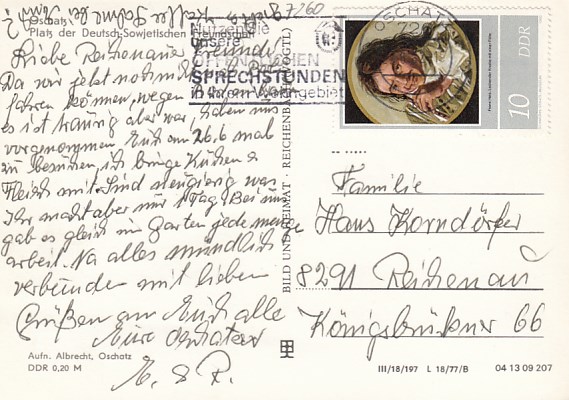 B7/60
Oschatz
Platz der Deutsch-Sowjetischen Freundschaft
Liebe Reichenauer Freunde
Da wir jetzt noch nicht
fahren können, wegen
es ist traurig aber war, haben uns
vorgenommen Euch am 26.6 mal
zu besuchen, ich bringe Kuchen &
Fleisch mit. Sind neugierig was
Ihr macht aber nur 1 Tag. Bei uns
gab es gleich im Garten jede menge
arbeit. Na alles mündlich
verbunden mit lieben
Grüßen an Euch alle
Eure Oschatzer
M. & R.
Aufn. Albrecht, Oschatz
DDR 0,20 M
BILD UND HEIMAT · REICHENBACH (VOGTL)
Nutzen Sie
unsere
ÖFFENTLICHEN
SPRECHSTUNDEN
in Ihrem Wohngebiet
OSCHATZ
DDR
10
Familie
Hans Korndörfer
8291 Reichenau
Königsbrücker 66
III/18/197 L 18/77/B 04 13 09 207